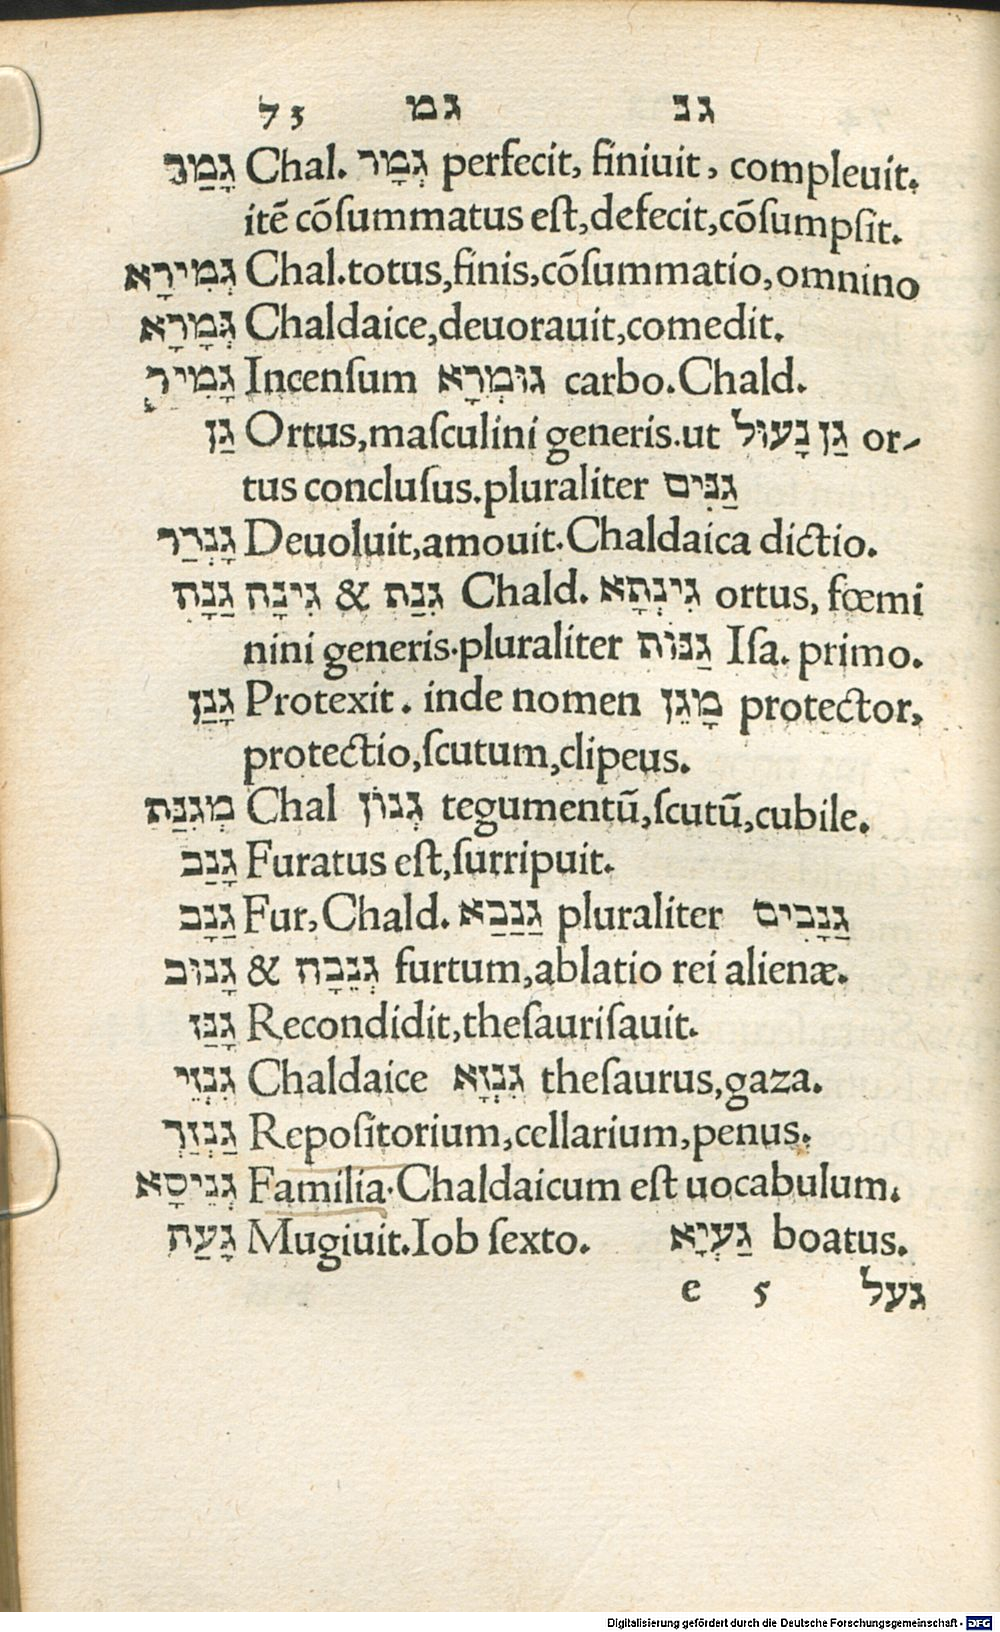 73 גמ גנ
גָּמַר Chal. גְּמָר perfecit, finiuit, compleuit.
itē cōſummatus eſt, defecit, cōſumpſit.
גְּמִירָא Chal. totus, finis, cōſummatio, omnino
גְּמָרָא Chaldaice, deuorauit, comedit.
גָּמִיר Incenſum גּוּמְרָא carbo. Chald.
גַּן Ortus, maſculini generis. ut גַּן נָעוּל or-
tus concluſus. pluraliter גַּנִּים
גָּנְדַר Deuoluit, amouit. Chaldaica dictio.
גַּנָּת גִּינָּה & גִּנַּת Chald. גִּינְתָא ortus, fœmi
nini generis. pluraliter גַּנּוֹת Iſa. primo.
גָּנַן Protexit. inde nomen מָגֵן protector,
protectio, ſcutum, clipeus.
מְגִנַּת Chal גְּנוֹן tegumentū, ſcutū, cubile.
גָּנַב Furatus eſt, ſurripuit.
גַּנָּב Fur, Chald. גַּנַּבָא pluraliter גַּנָּבִים
גָּנוּב & גְּנֵבָה furtum, ablatio rei alienæ.
גָּנַז Recondidit, theſauriſauit.
גִּנְזֵי Chaldaice גִּנְזָא theſaurus, gaza.
גַּנְזַךְ Repoſitorium, cellarium, penus.
גְּנֵיסָא Familia. Chaldaicum eſt uocabulum.
גָּעַה Mugiuit. Iob ſexto. גַּעְיָא boatus.
e 5 געל
Digitalisierung gefördert durch die Deutsche Forschungsgemeinschaft - DFG